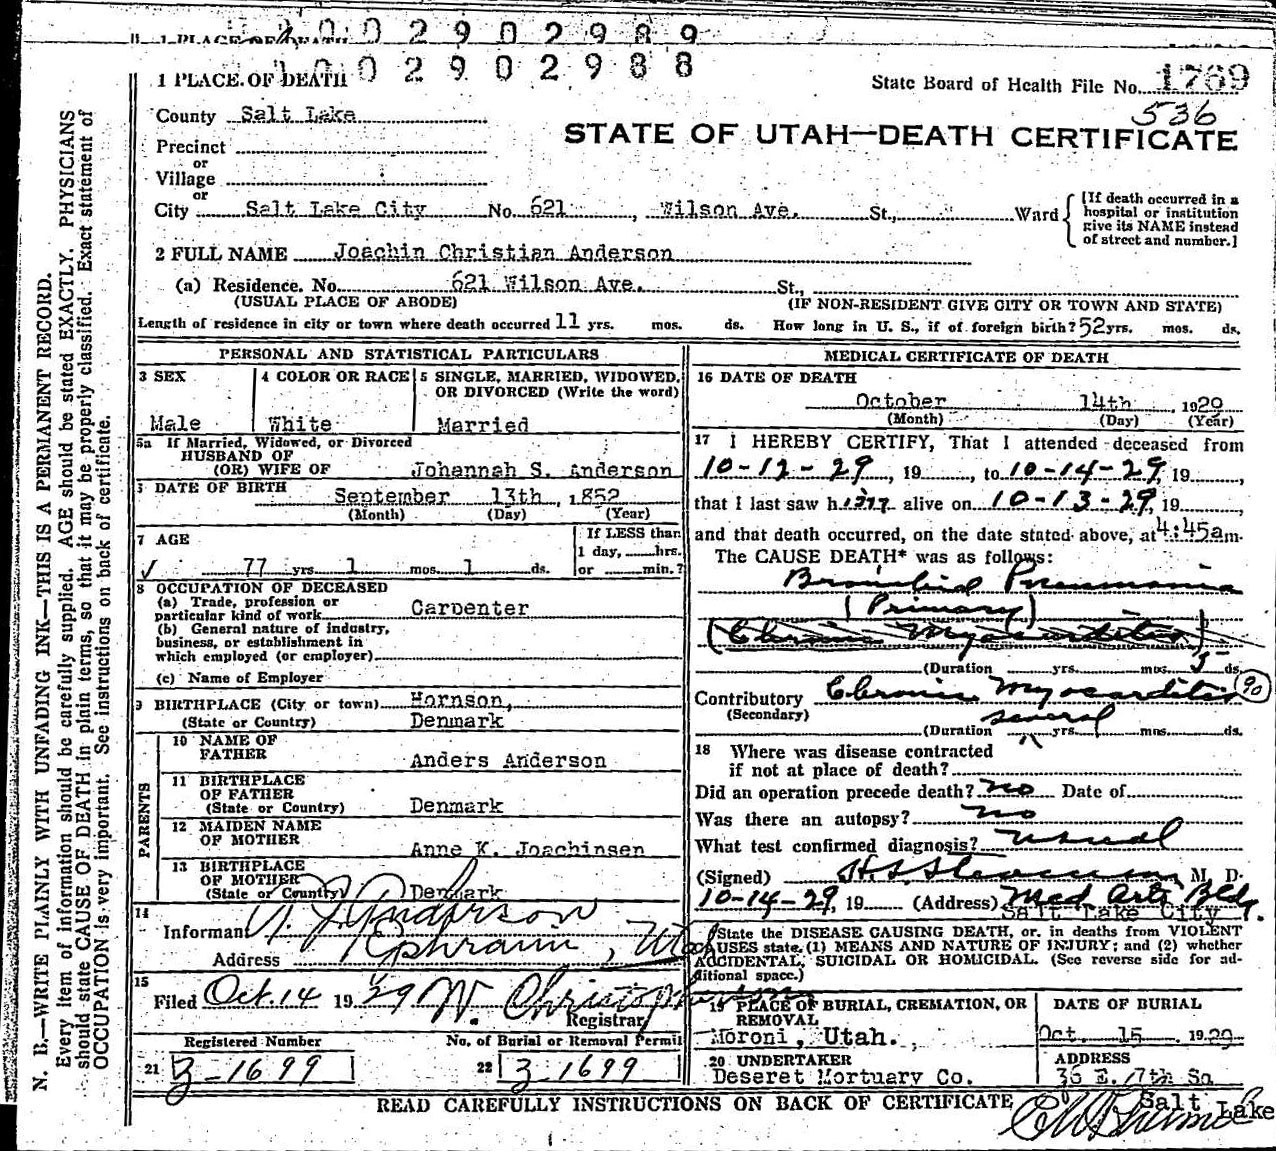 0 0 2 9 0 2 9 8 9
1 PLACE OF DEATH
1 0 0 2 9 0 2 9 8 8
1 PLACE OF DEATH
State Board of Health File No. 1769
536
County Salt Lake
STATE OF UTAH—DEATH CERTIFICATE
Precinct
or
Village
or
City Salt Lake City No. 621, Wilson Ave. St., Ward
[If death occurred in a hospital or institution give its NAME instead of street and number.]
2 FULL NAME Joachin Christian Anderson
(a) Residence. No. 621 Wilson Ave. St.,
(USUAL PLACE OF ABODE) (IF NON-RESIDENT GIVE CITY OR TOWN AND STATE)
Length of residence in city or town where death occurred 11 yrs. mos. ds. How long in U. S., if of foreign birth? 52 yrs. mos. ds.
PERSONAL AND STATISTICAL PARTICULARS
3 SEX
Male
4 COLOR OR RACE
White
5 SINGLE, MARRIED, WIDOWED,
OR DIVORCED (Write the word)
Married
5a If Married, Widowed, or Divorced
HUSBAND OF
(OR) WIFE OF Johannah S. Anderson
DATE OF BIRTH
September 13th, 1852
(Month) (Day) (Year)
7 AGE
77 yrs. 1 mos. 1 ds.
If LESS than
1 day, hrs.
or min.?
8 OCCUPATION OF DECEASED
(a) Trade, profession or
particular kind of work Carpenter
(b) General nature of industry,
business, or establishment in
which employed (or employer)
(c) Name of Employer
9 BIRTHPLACE (City or town) Hornson,
(State or Country) Denmark
PARENTS
10 NAME OF
FATHER Anders Anderson
11 BIRTHPLACE
OF FATHER
(State or Country) Denmark
12 MAIDEN NAME
OF MOTHER Anne K. Joachinsen
13 BIRTHPLACE
OF MOTHER
(State or Country) Denmark
14
Informant Anderson
Address Ephraim, Utah
15
Filed Oct. 14 1929 W. Christopherson
Registrar
Registered Number
21 3-1699
No. of Burial or Removal Permit
22 3-1699
MEDICAL CERTIFICATE OF DEATH
16 DATE OF DEATH
October 14th, 1929
(Month) (Day) (Year)
17 I HEREBY CERTIFY, That I attended deceased from
10-12-29, 19, to 10-14-29, 19,
that I last saw him alive on 10-13-29, 19,
and that death occurred, on the date stated above, at 4:45a m.
The CAUSE DEATH* was as follows:
Bronchial Pneumonia
(Primary)
(Chronic Myocarditis)
(Duration yrs. mos. 5 ds.
Contributory Chronic Myocarditis 90
(Secondary)
several
(Duration yrs. mos. ds.
18 Where was disease contracted
if not at place of death?
Did an operation precede death? no Date of
Was there an autopsy? no
What test confirmed diagnosis? usual
(Signed) M. D.
10-14-29, 19 (Address) Med. Arts Bldg.
Salt Lake City
State the DISEASE CAUSING DEATH, or, in deaths from VIOLENT
CAUSES state, (1) MEANS AND NATURE OF INJURY; and (2) whether
ACCIDENTAL, SUICIDAL OR HOMICIDAL. (See reverse side for ad-
ditional space.)
19 PLACE OF BURIAL, CREMATION, OR
REMOVAL
Moroni, Utah.
DATE OF BURIAL
Oct. 15 1929
20 UNDERTAKER
Deseret Mortuary Co.
ADDRESS
36 E. 7th So
Salt Lake
READ CAREFULLY INSTRUCTIONS ON BACK OF CERTIFICATE
N. B.—WRITE PLAINLY WITH UNFADING INK—THIS IS A PERMANENT RECORD.
Every item of information should be carefully supplied. AGE should be stated EXACTLY. PHYSICIANS
should state CAUSE OF DEATH in plain terms, so that it may be properly classified. Exact statement of
OCCUPATION is very important. See instructions on back of certificate.